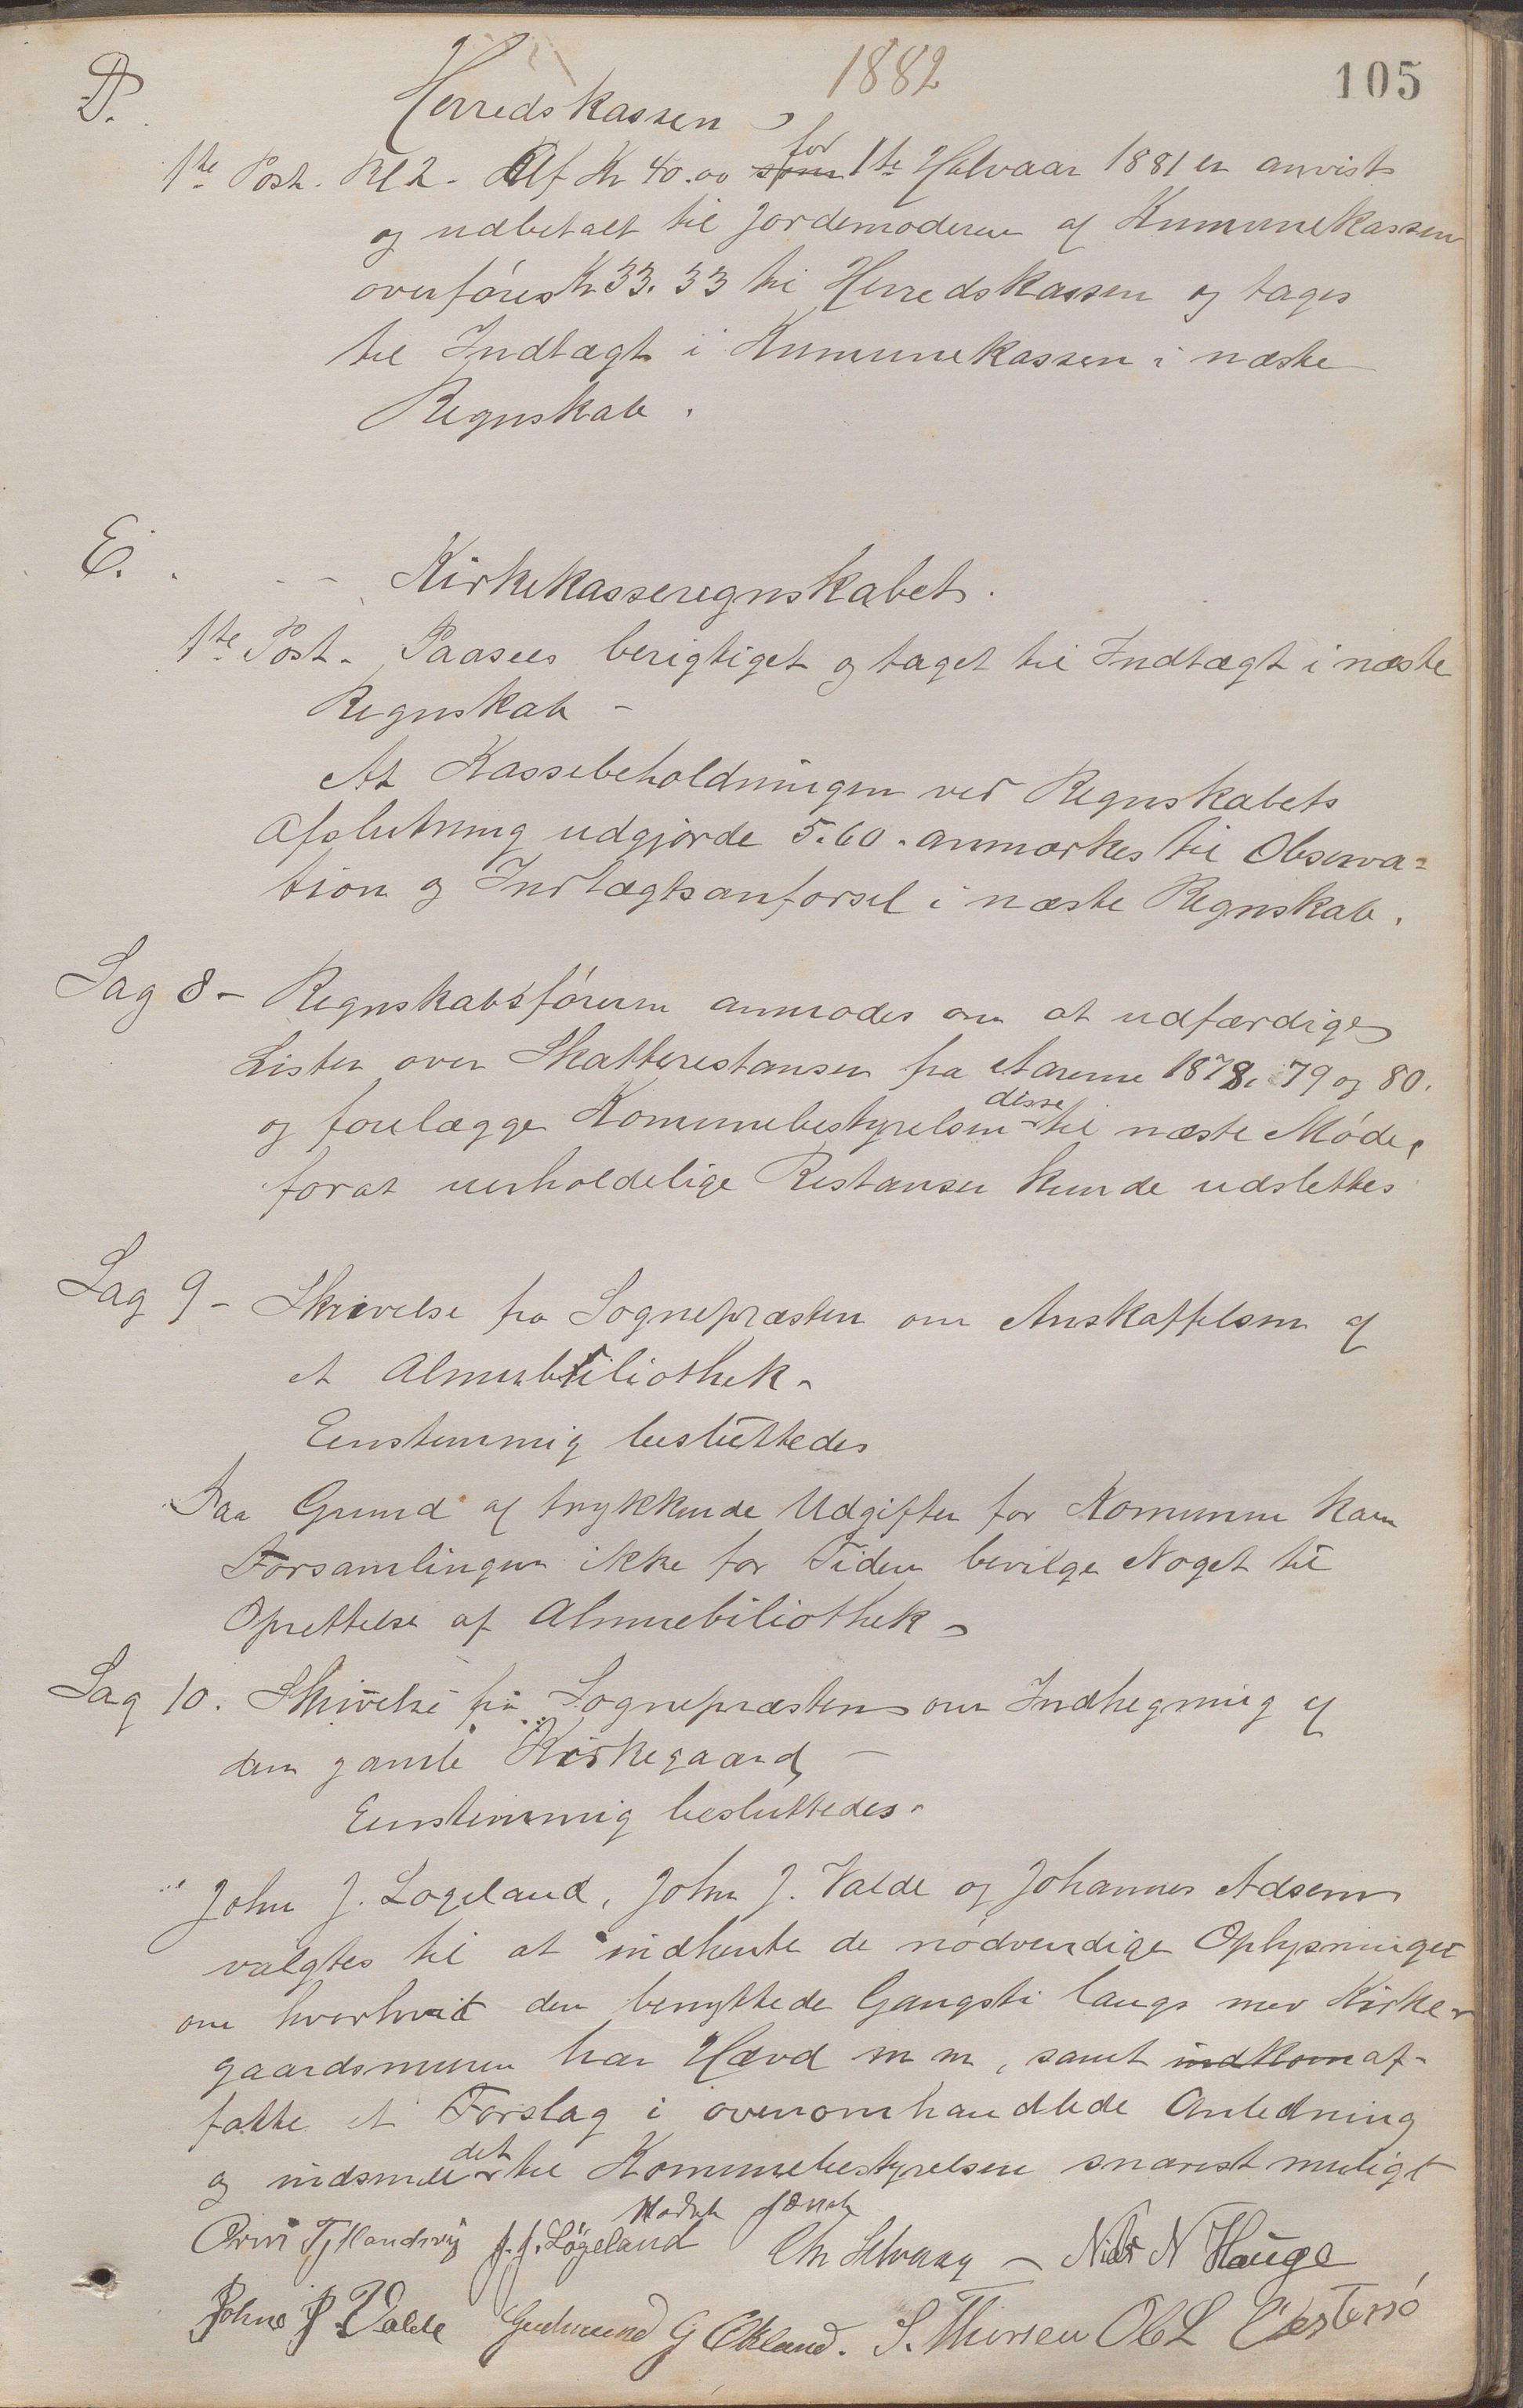 1882
105
D.
Herredskassen
1te Post. Rl 2. Af Kr 40.00 som for 1te Halvaar 1881 er anvist
og udbetalt til Jordemoderen af Kumunekassen
overføres Kr 33.33 til Herredskassen og tages
til Indtægt i Kumunekassen i næste
Regnskab.
E.
Kirkekasseregnskabet.
1te Post. Paasees berigtiget og taget til Indtægt i næste
Regnskab -
At Kassebeholdningen ved Regnskabets
Afslutning udgjorde 5.60. anmærkes til Observa=
tion og Indtægtsanførsel i næste Regnskab.
Sag 8 - Regnskabsføreren anmodes om at udfærdige
Lister over Skatterestanser fra Aarene 1878. 79 og 80.
og forelægge Komunebestyrelsen disse til næste Møde,
forat uerholdelige Restanser kunde udslettes
Sag 9 - Skrivelse fra Sognepræsten om Anskaffelsen af
et Almuebiliothek -
Eenstemmig besluttedes
Paa Grund af trykkende Udgifter for Komunen kan
Forsamlingen ikke for Tiden bevilge Noget til
Oprettelse af Almuebiliothek -
Sag 10. Skrivelse fra Sognepræsten om Indhegning af
den gamle Kirkegaard -
Eenstemmig besluttedes.
John J. Logeland, John J. Valde og Johannes Adsen
valgtes til at indhente de nødvendige Oplysninger
om hvorhvit den benyttede Gangsti langs med Kirke-
gaardsmuren har Hævd m m, samt indkom af-
fatte et Forslag i ovenomhandlede Anledning
og indsende det til Kommunebestyrelsen snarest muligt
J. J. Løgeland Chr Selvaag - Niels N Hauge
Johns J. Valde Gudmund G Økland. S. Thorsen Ole L